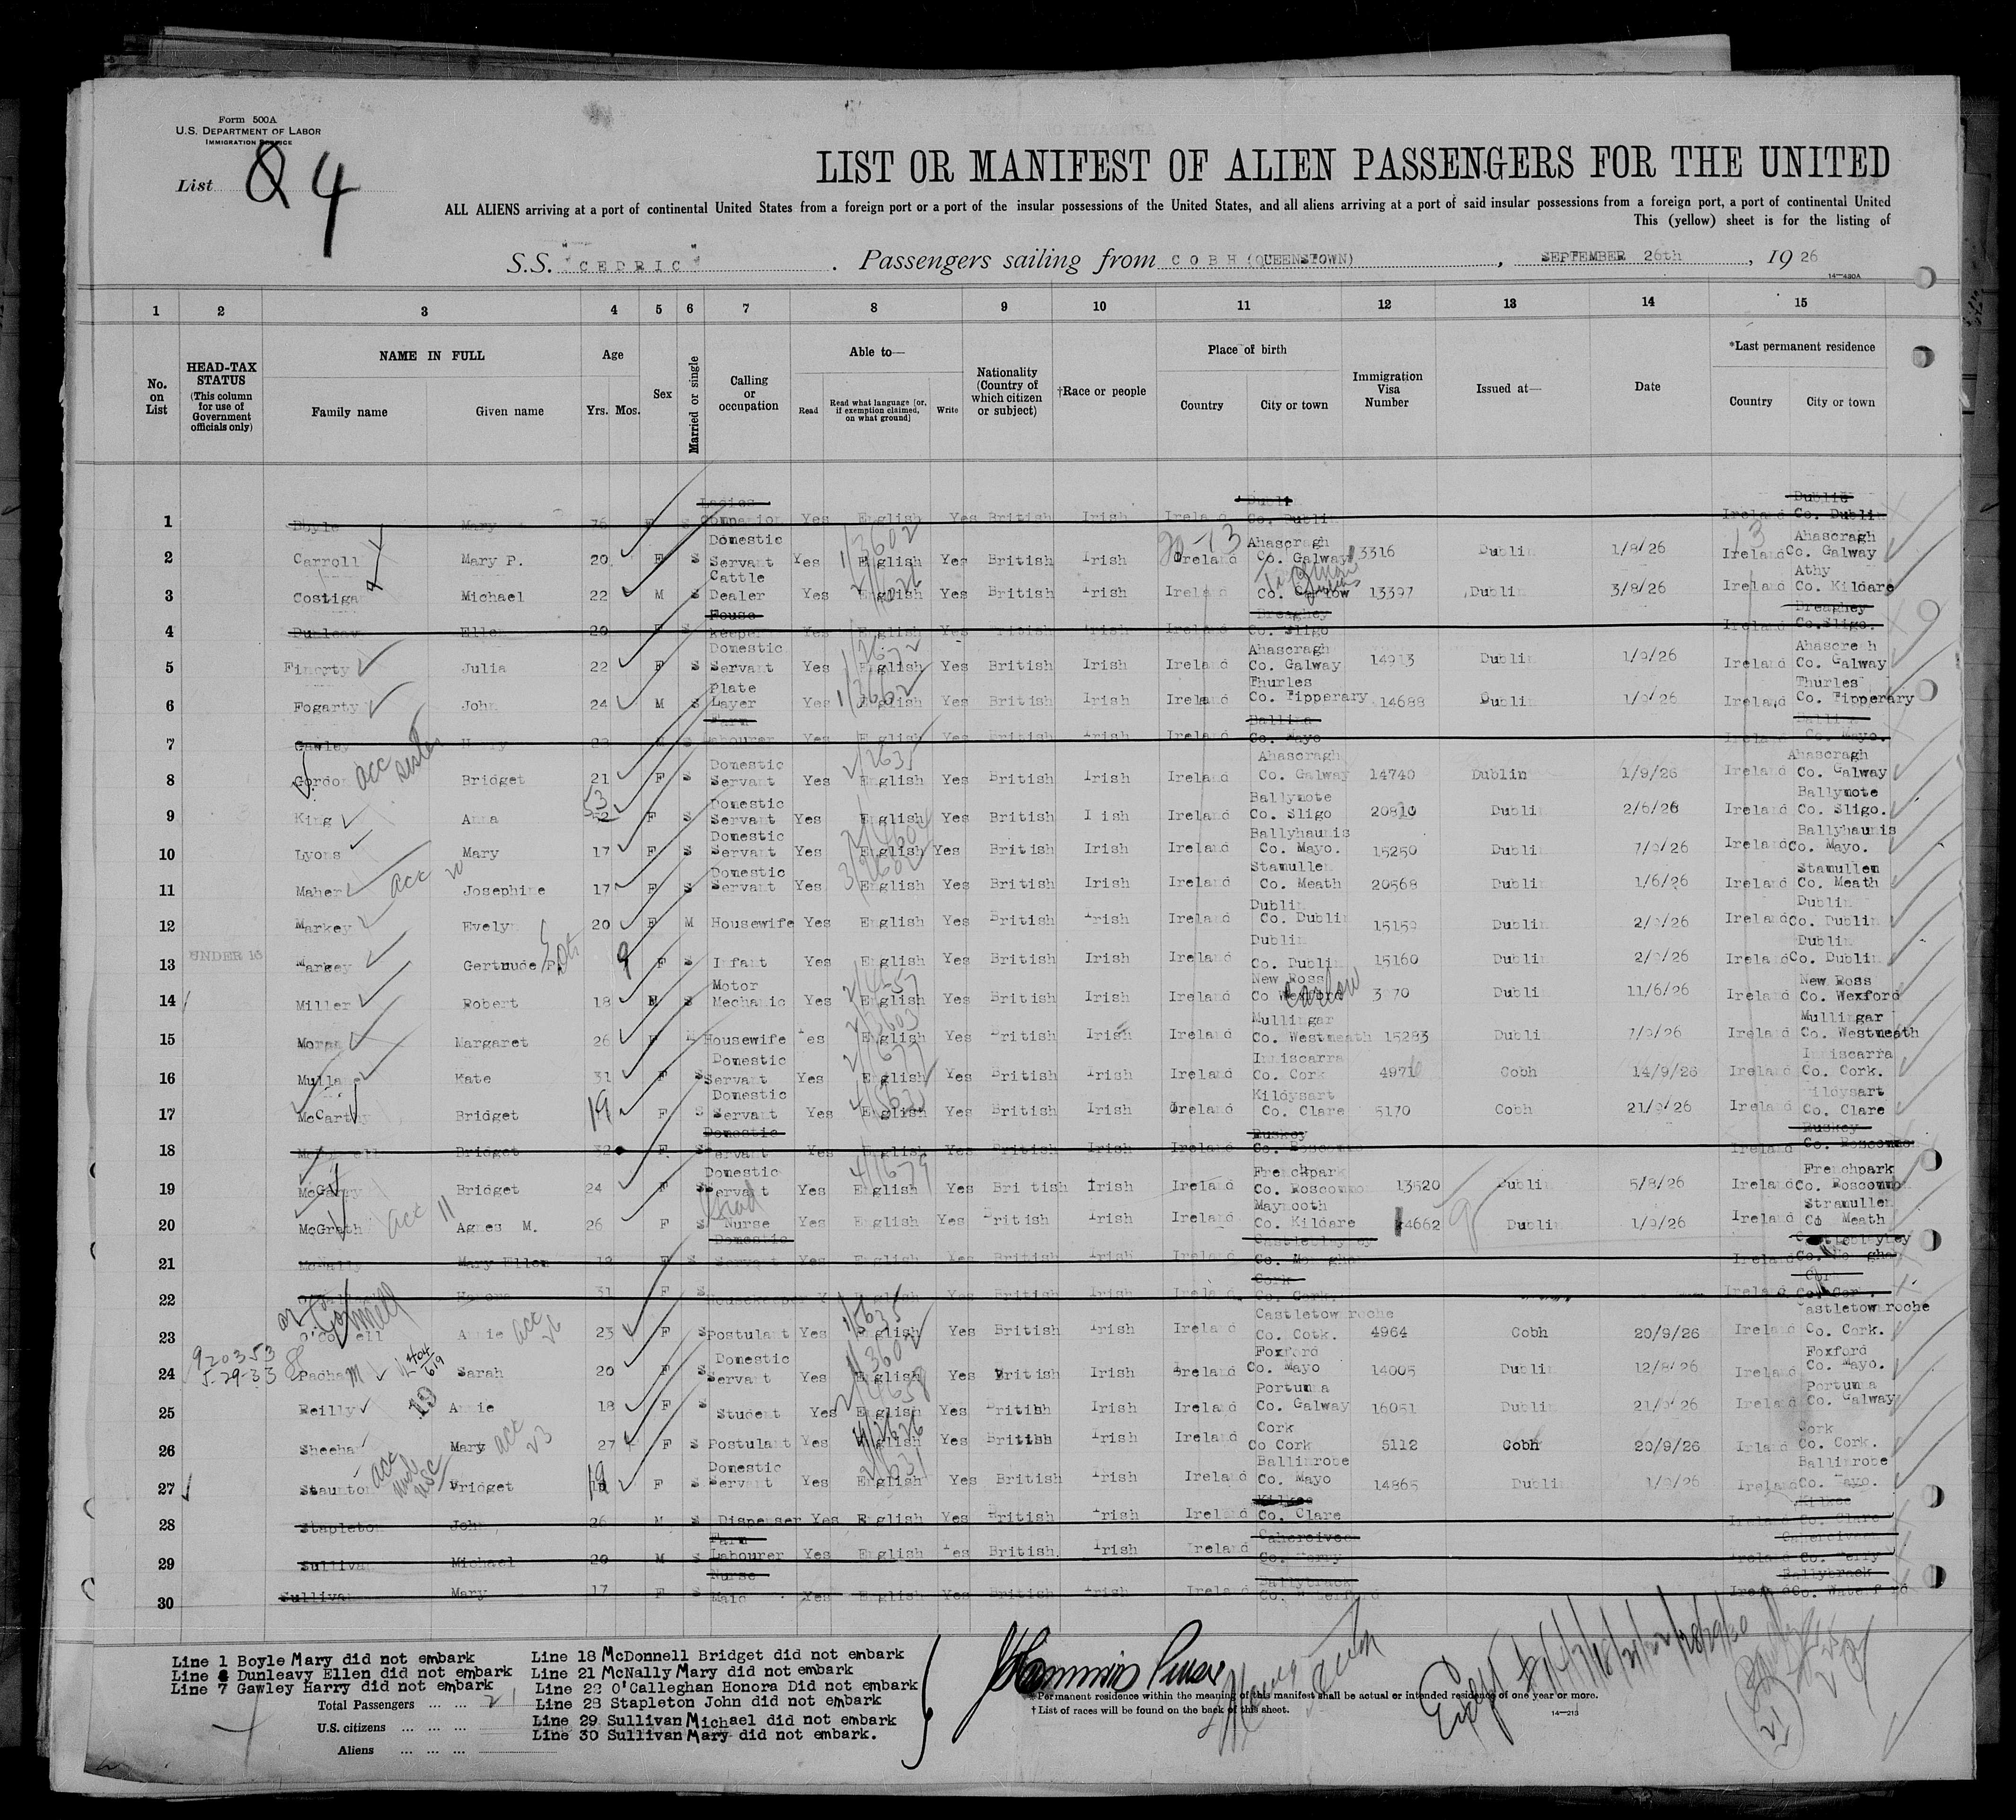 Form 500A
U.S. DEPARTMENT OF LABOR
IMMIGRATION SERVICE
List 4
LIST OR MANIFEST OF ALIEN PASSENGERS FOR THE UNITED
ALL ALIENS arriving at a port of continental United States from a foreign port or a port of the insular possessions of the United States, and all aliens arriving at a port of said insular possessions from a foreign port, a port of continental United
This (yellow) sheet is for the listing of
S.S. "CEDRIC" . Passengers sailing from COBH (QUEENSTOWN) , SEPTEMBER 26th , 19 26
14—430A
1 2 3 4 5 6 7 8 9 10 11 12 13 14 15
No. on List
HEAD-TAX STATUS (This column for use of Government officials only)
NAME IN FULL
Family name Given name
Age
Yrs. Mos.
Sex
Married or single
Calling or occupation
Able to—
Read Read what language [or, if exemption claimed, on what ground] Write
Nationality (Country of which citizen or subject)
†Race or people
Place of birth
Country City or town
Immigration Visa Number
Issued at—
Date
*Last permanent residence
Country City or town
1 Boyle Mary 76 F S Ladies Companion Yes English Yes British Irish Ireland Dublin Co. Dublin Ireland Dublin Co. Dublin
2 Carroll Mary P. 20 F S Domestic Servant Yes English Yes British Irish Ireland Ahascragh Co. Galway 13316 Dublin 1/8/26 Ireland Ahascragh Co. Galway
3 Costigan Michael 22 M S Cattle Dealer Yes English Yes British Irish Ireland Co. Carlow 13397 Dublin 3/8/26 Ireland Athy Co. Kildare
4 Dunleavy Ellen 20 F S House keeper Yes English Yes British Irish Ireland Dreaghey Co. Sligo Ireland Dreaghey Co. Sligo.
5 Finerty Julia 22 F S Domestic Servant Yes English Yes British Irish Ireland Ahascragh Co. Galway 14913 Dublin 1/9/26 Ireland Ahascragh Co. Galway
6 Fogarty John 24 M S Plate Layer Yes English Yes British Irish Ireland Thurles Co. Tipperary 14688 Dublin 1/9/26 Ireland Thurles Co. Tipperary
7 Gawley Harry 23 M S Farm Labourer Yes English Yes British Irish Ireland Ballina Co. Mayo Ireland Ballina Co. Mayo.
8 Gordon acc sister Bridget 21 F S Domestic Servant Yes English Yes British Irish Ireland Ahascragh Co. Galway 14740 Dublin 1/9/26 Ireland Ahascragh Co. Galway
9 King Anna 53 F S Domestic Servant Yes English Yes British Irish Ireland Ballymote Co. Sligo 20810 Dublin 2/6/26 Ireland Ballymote Co. Sligo.
10 Lyons Mary 17 F S Domestic Servant Yes English Yes British Irish Ireland Ballyhaunis Co. Mayo. 15250 Dublin 7/9/26 Ireland Ballyhaunis Co. Mayo.
11 Maher acc Josephine 17 F S Domestic Servant Yes English Yes British Irish Ireland Stamullen Co. Meath 20568 Dublin 1/6/26 Ireland Stamullen Co. Meath
12 Markey Evelyn 20 F M Housewife Yes English Yes British Irish Ireland Dublin Co. Dublin 15159 Dublin 2/9/26 Ireland Dublin Co. Dublin
13 UNDER 16 Markey Gertrude P. 9 F S Infant Yes English Yes British Irish Ireland Dublin Co. Dublin 15160 Dublin 2/9/26 Ireland Dublin Co. Dublin
14 Miller Robert 18 M S Motor Mechanic Yes English Yes British Irish Ireland New Ross Co Wexford Carlow 3070 Dublin 11/6/26 Ireland New Ross Co. Wexford
15 Moran Margaret 26 F M Housewife Yes English Yes British Irish Ireland Mullingar Co. Westmeath 15283 Dublin 7/9/26 Ireland Mullingar Co. Westmeath
16 Mullane Kate 31 F S Servant Domestic Yes English Yes British Irish Ireland Inniscarra Co. Cork 4976 Cobh 14/9/26 Ireland Inniscarra Co. Cork.
17 McCarthy Bridget 19 F S Domestic Servant Yes English Yes British Irish Ireland Kildysart Co. Clare 5170 Cobh 21/9/26 Ireland Kildysart Co. Clare
18 McDonnell Bridget 32 F S Domestic Servant Yes English Yes British Irish Ireland Ruskey Co. Roscommon Ireland Ruskey Co. Roscommon
19 McGarry Bridget 24 F S Domestic Servant Yes English Yes British Irish Ireland Frenchpark Co. Roscommon 13520 Dublin 5/8/26 Ireland Frenchpark Co. Roscommon
20 McGrath acc 11 Agnes M. 26 F S Nurse Yes English Yes British Irish Ireland Maynooth Co. Kildare 14662 Dublin 1/9/26 Ireland Stramullen Co Meath
21 McNally Mary Ellen 18 F S Domestic Servant Yes English Yes British Irish Ireland Castleblayney Co. Monaghan Ireland Castleblayney Co. Monaghan
22 O'Calleghan Honora 31 F S Housekeeper Y English Yes British Irish Ireland Cork Co. Cork. Ireland Cork Co. Cork.
23 O'Connell or Connell Annie acc 26 23 F S Postulant Yes English Yes British Irish Ireland Castletownroche Co. Cotk. 4964 Cobh 20/9/26 Ireland Castletownroche Co. Cork.
920353
5-29-33
24 Padham Sarah 20 F S Domestic Servant Yes English Yes British Irish Ireland Foxford Co. Mayo 14005 Dublin 12/8/26 Ireland Foxford Co. Mayo.
25 Reilly Annie 18 F S Student Yes English Yes British Irish Ireland Portumna Co. Galway 16051 Dublin 21/9/26 Ireland Portumna Co. Galway
26 Sheehan Mary acc 23 27 F S Postulant Yes English Yes British Irish Ireland Cork Co Cork 5112 Cobh 20/9/26 Irland Cork Co. Cork.
27 Staunton acc Bridget 19 F S Domestic Servant Yes English Yes British Irish Ireland Ballinrobe Co. Mayo 14865 Dublin 1/9/26 Ireland Ballinrobe Co. Mayo.
28 Stapleton John 26 M S Dispenser Yes English Yes British Irish Ireland Kilkee Co. Clare Ireland Kilkee Co. Clare
29 Sullivan Michael 20 M S Farm Labourer Yes English Yes British. Irish Ireland Caherciveen Co. Kerry Ireland Caherciveen Co. Kerry
30 Sullivan Mary 17 F S Nurse Maid Yes English Yes British Irish Ireland Ballytrack Co. Waterford Ireland Ballytrack Co. Waterford
Line 1 Boyle Mary did not embark
Line 4 Dunleavy Ellen did not embark
Line 7 Gawley Harry did not embark
Line 18 McDonnell Bridget did not embark
Line 21 McNally Mary did not embark
Line 22 O'Calleghan Honora Did not embark
Line 28 Stapleton John did not embark
Line 29 Sullivan Michael did not embark
Line 30 Sullivan Mary did not embark.
Total Passengers ... ... 21
U.S. citizens ... ... ...
Aliens ... ... ...
* Permanent residence within the meaning of this manifest shall be actual or intended residence of one year or more.
† List of races will be found on the back of this sheet.
14—213